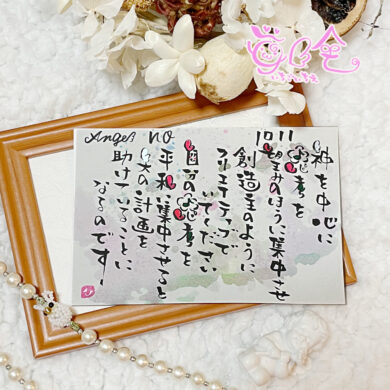 Angel no 1011
神を中心に
思考を
望みのほうに集中させ
創造主のように
クリエイティブで
いてください
自分の思考を
平和に集中させると
天の計画を
助けていることに
なるのです
ひ